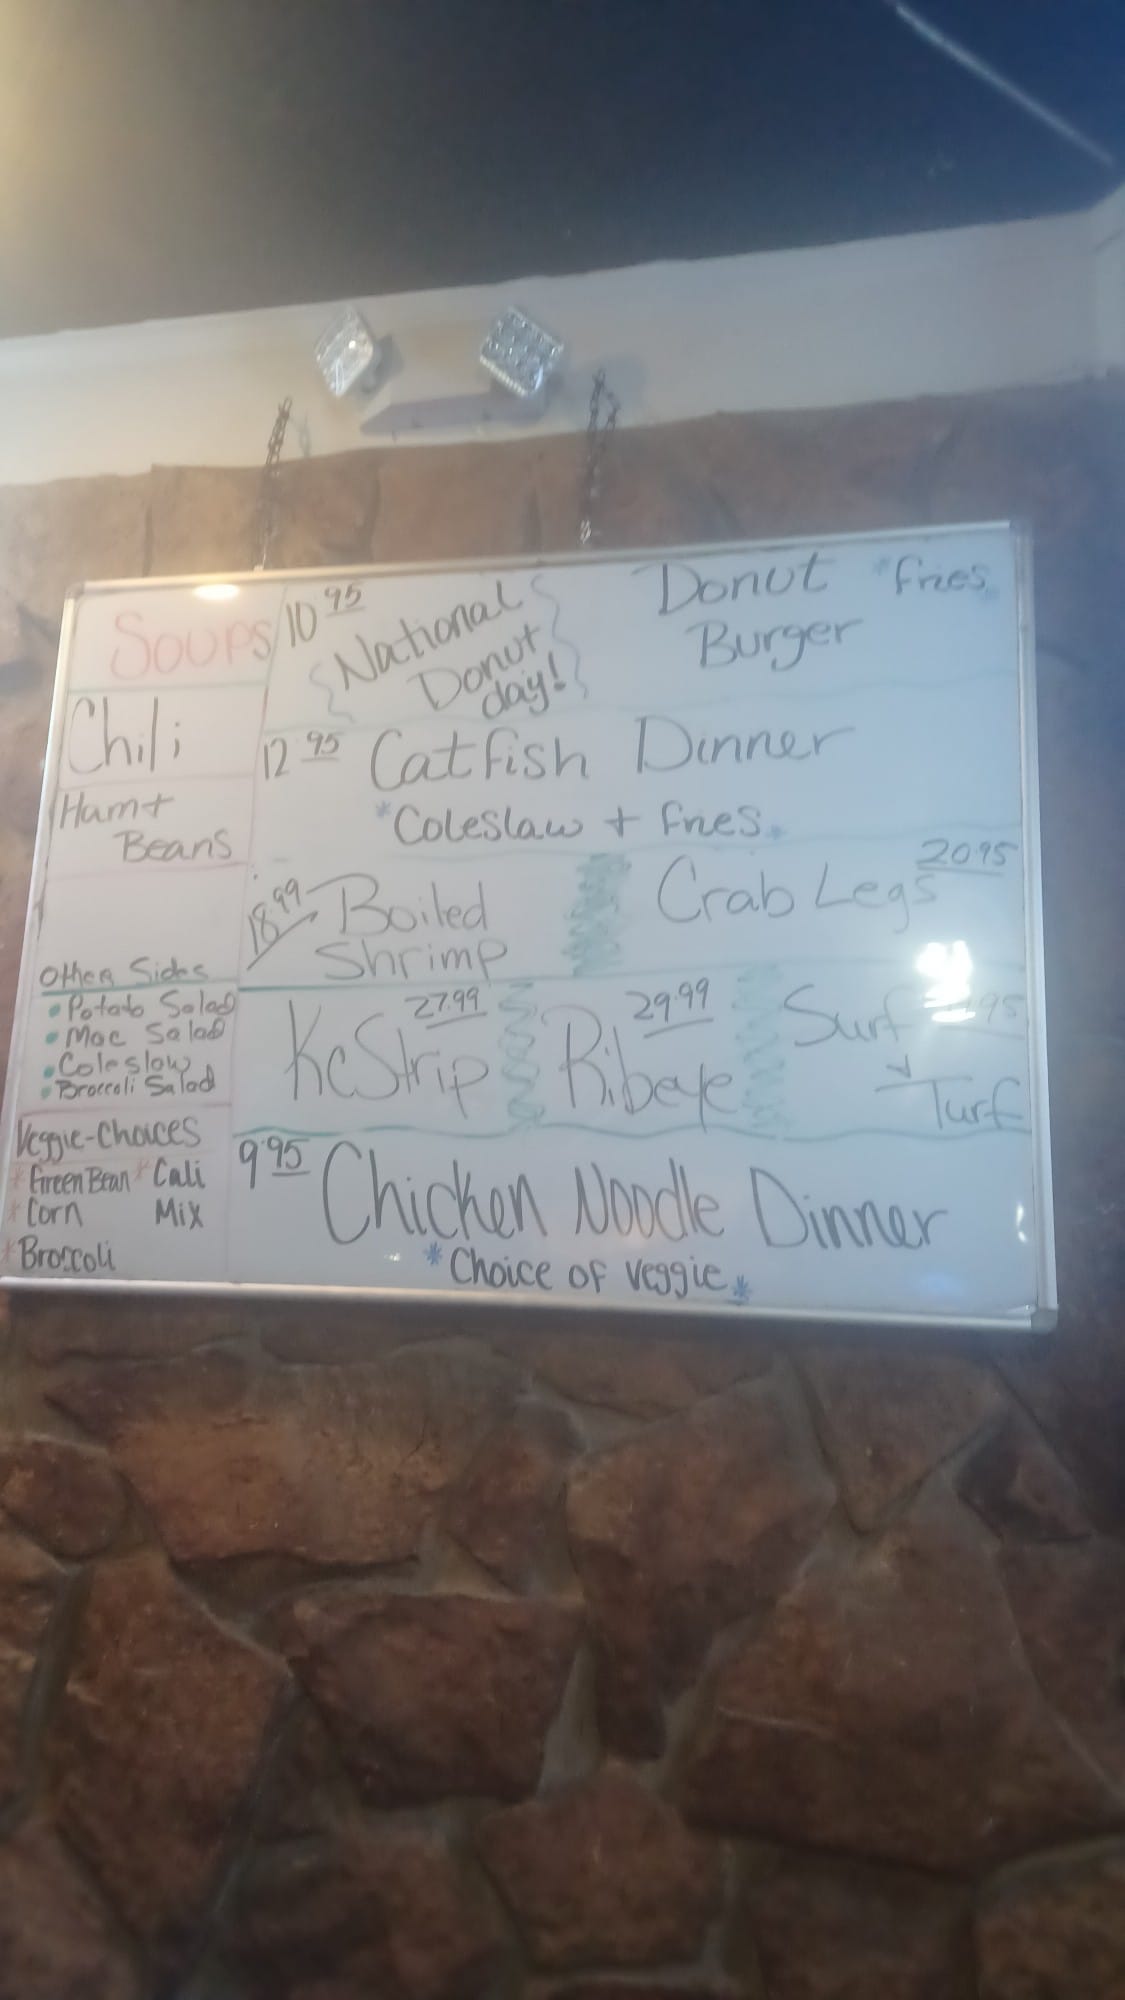 Soups
Chili
Ham +
Beans
Other Sides
• Potato Salad
• Mac Salad
• Coleslaw
• Broccoli Salad
Veggie-Choices
* Green Bean * Cali
* Corn Mix
* Broccoli
10 95 National
Donut
day!
Donut *fries*
Burger
12 95 Catfish Dinner
*Coleslaw + fries*
18.99 Boiled
Shrimp
Crab Legs 20.95
KC Strip 27.99
Ribeye 29.99
Surf
Turf
9.95 Chicken Noodle Dinner
*Choice of veggie*